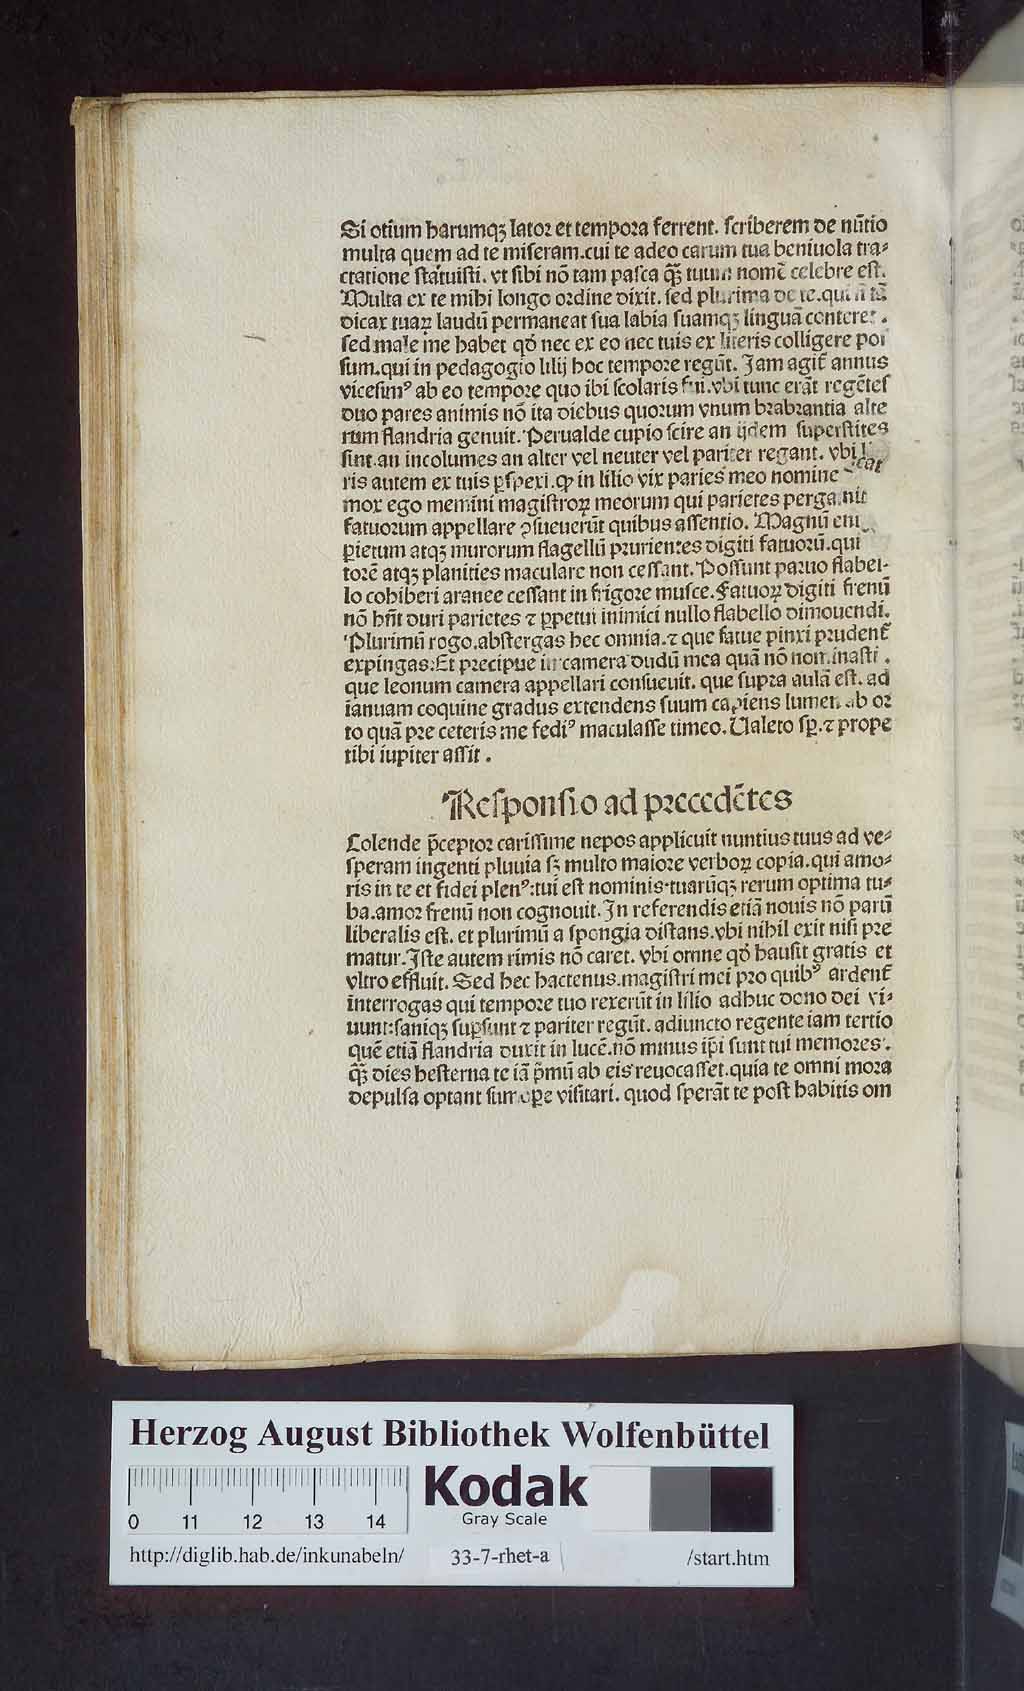 Si otium harumqꝫ lator et tempora ferrent. scriberem de nūtio
multa quem ad te miseram.cui te adeo carum tua beniuola tra⸗
ctatione statuisti. vt sibi nō tam pasca qᷓꝫ tuum nomē celebre est.
Multa ex te mihi longo ordine dixit. sed plurima de te.qui ñ tā
dicax tuaꝝ laudū permaneat sua labia suamqꝫ linguā conteret.
sed male me habet qđ nec ex eo nec tuis ex literis colligere pos
sum.qui in pedagogio lilij hoc tempore regūt. Jam agit̄ annus
vicesimꝰ ab eo tempore quo ibi scolaris fui.vbi tunc erāt regētes
duo pares animis nō ita diebus quorum vnum brabrantia alte
rum flandria genuit. Perualde cupio scire an ijdem superstites
sint.an incolumes an alter vel neuter vel pariter regant. vbi
ris autem ex tuis ꝑspexi.ꝙ in lilio vix paries meo nomine
mox ego memini magistroꝝ meorum qui parietes
fatuorum appellare ꝯsueuerūt quibus assentio. Magnū eni
ꝑietum atqꝫ murorum flagellū prurientes digiti fatuorū.qui
torē atqꝫ planities maculare non cessant. Possunt paruo flabel⸗
lo cohiberi aranee cessant in frigore musce. Fatuoꝝ digiti frenū
nō hñt duri parietes ⁊ ꝑpetui inimici nullo flabello dimouendi.
Plurimū rogo.abstergas hec omnia.⁊ que fatue pinxi prudent̄
expingas: Et precipue in camera dudū mea quā nō nominasti.
que leonum camera appellari consueuit. que supra aulā est. ad
ianuam coquine gradus extendens suum capiens lumen ab or
to quā pre ceteris me fediꝰ maculasse timeo. Ualeto sꝑ.⁊ prope
tibi iupiter assit.
Responsio ad precedētes
Colende p̄ceptor carissime nepos applicuit nuntius tuus ad ve⸗
speram ingenti pluuia sꝫ multo maiore verboꝝ copia.qui amo⸗
ris in te et fidei plenꝰ:tui est nominis.tuarūqꝫ rerum optima tu⸗
ba.amor frenū non cognouit. In referendis etiā nouis nō parū
liberalis est. et plurimū a spongia distans.vbi nihil exit nisi pre
matur. Iste autem rimis nō caret. vbi omne qđ hausit gratis et
vltro effluit. Sed hec hactenus.magistri mei pro quibꝰ ardent̄
interrogas qui tempore tuo rexerūt in lilio adhuc dono dei vi⸗
uunt:saniqꝫ suꝑsunt ⁊ pariter regūt. adiuncto regente iam tertio
quē etiā flandria duxit in lucē.nō minus ip̄i sunt tui memores.
qᷓꝫ dies hesterna te iā p̄mū ab eis reuocasset.quia te omni mora
depulsa optant sumoꝑe visitari. quod sperāt te post habitis om
Herzog August Bibliothek Wolfenbüttel
0 11 12 13 14
Kodak
Gray Scale
http://diglib.hab.de/inkunabeln/ 33-7-rhet-a /start.htm